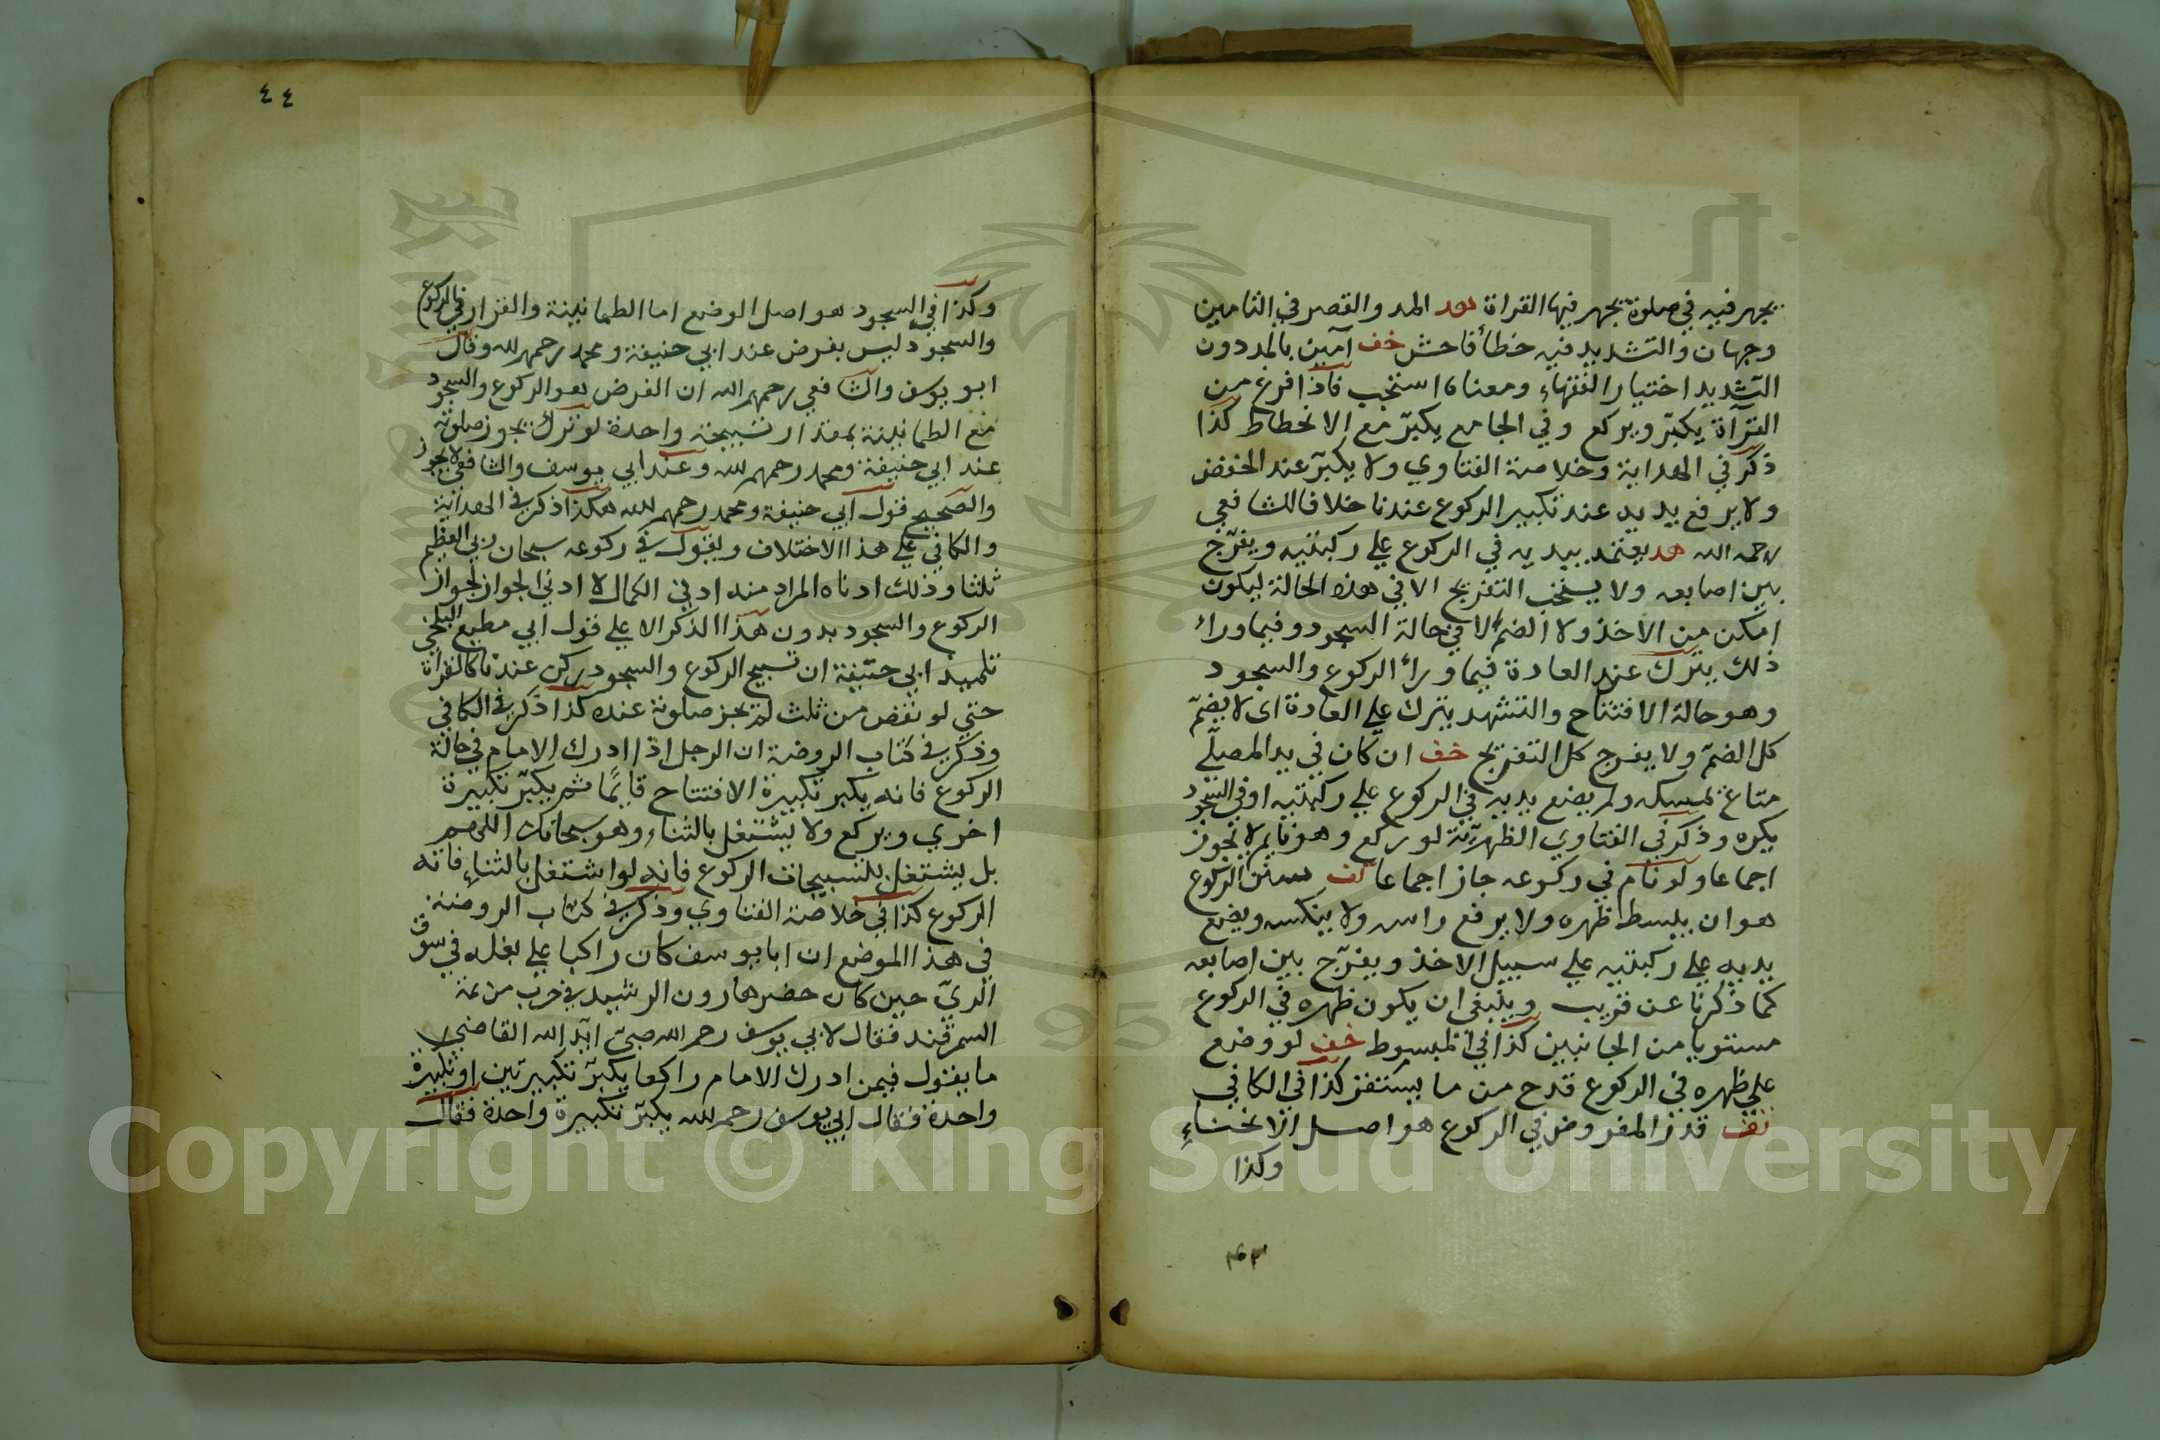 يجهر فيه في صلوة يجهر فيها القراة هد المد والقصر في التامين
وجهان والتشديد فيه خطأ فاحش خف آمين بالمد دون
التشديد اختيار الفقهاء ومعناه استجب فاذا فرغ من
القرآة يكبّر ويركع وفي الجامع يكبّر مع الانحطاط كذا
ذكر في الهداية وخلاصة الفتاوي ولا يكبّر عند الخفض
ولا يرفع يديه عند تكبير الركوع عندنا خلافا للشافعي
رحمه الله هد يعتمد بيديه في الركوع علي ركبتيه ويفرّج
بين اصابعه ولا يستحب التفريج الا في هذه الحالة ليكون
امكن من الاخذ ولا الضم الا في حالة السجود وفيما وراء
ذلك يترك عند العادة فيما وراء الركوع والسجود
وهو حالة الافتتاح والتشهد يترك علي العادة اى لا يضمّ
كل الضمّ ولا يفرج كل التفريج خف ان كان في يد المصلّي
متاع يمسكه ولم يضع يديه في الركوع علي ركبتيه او في السجود
يكره وذكر في الفتاوي الظهريّة لو ركع وهو نايم لا يجوز
اجماعا ولو نام في ركوعه جاز اجماعا الركوع
هو ان يبسط ظهره ولا يرفع راسه ولا ينكسه ويضع
يديه علي ركبتيه علي سبيل الاخذ ويفرّج بين اصابعه
كما ذكرنا عن قريب وينبغي ان يكون ظهره في الركوع
مستويا من الجانبين كذا في المبسوط خف لو وضع
علي ظهره في الركوع قدح من ما يستقر كذا في الكافي
قدر المفروض في الركوع هو اصل الانحناء
وكذا
٤٤
وكذا في السجود هو اصل الوضع اما الطمانينة والقرار في الركوع
والسجود ليس بفرض عند ابي حنيفة ومحمد رحمهم الله وقال
ابو يوسف والشافعي رحمهم الله ان الفرض هو الركوع والسجود
مع الطمانينة بمقدار تسبيحة واحدة لو ترك يجوز صلوته
عند ابي حنيفة ومحمد رحمهم الله وعند ابي يوسف والشافعي لا يجوز
والصحيح قول ابي حنيفة ومحمد رحمهم الله هكذا ذكر في الهداية
والكافي علي هذا الاختلاف ويقول في ركوعه سبحان ربي العظيم
ثلثا وذلك ادناه المراد منه ادني الكمال لا ادني الجواز لجواز
الركوع والسجود بدون هذا الذكر الا علي قول ابي مطيع البلخي
تلميذ ابي حنيفة ان تسبيح الركوع والسجود ركن عندنا كالقراة
حتي لو نقص من ثلث لم يجز صلوته عنده كذا ذكر في الكافي
وذكر في كتاب الروضة ان الرجل اذا ادرك الامام في حالة
الركوع فانه يكبر تكبيرة الافتتاح قايمًا ثم يكبّر تكبيرة
اخري ويركع ولا يشتغل بالثناء وهو سبحانك اللهم
بل يشتغل بتسبيحات الركوع فانه لو اشتغل بالثناء فاته
الركوع كذا في خلاصة الفتاوي وذكر في كتاب الروضة
في هذا الموضع ان ابا يوسف كان راكبا علي بغله في سوق
الريّ حين كان حضر هارون الرشيد في حرب من
السمرقند فقال لابي يوسف رحمه الله صبيّ ايّد الله القاضي
ما يقول فيمن ادرك الامام راكعا يكبّر تكبيرتين او تكبيرة
واحدة فقال ابي يوسف رحمه الله يكبّر تكبيرة واحدة فقال
Copyright © King Saud University